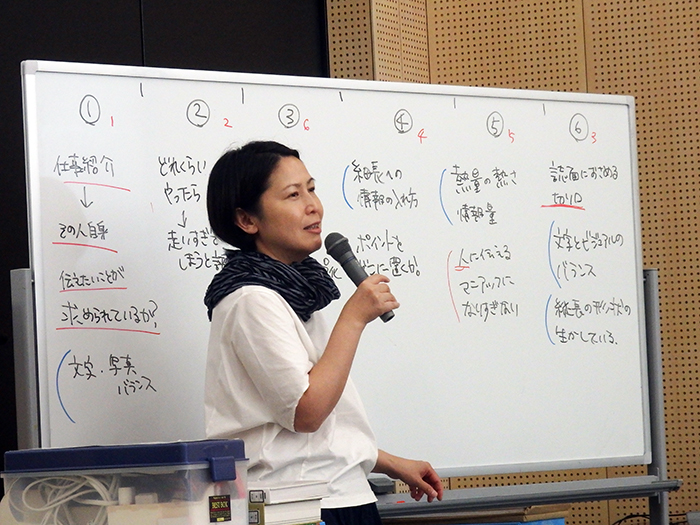 ① 1
仕事紹介
↓
その人自身
伝えたいことが
求められているか?
文字・写真
バランス
② 2
どれくらい
やったら
↓
走りすぎて
しまうと
③ 6
④ 4
細長への
情報の入れ方
ポイントを
どこに置くか。
⑤ 5
熱量の熱さ
情報量
人に伝える
マニアックに
なりすぎない
⑥ 3
誌面における
切り口
文字とビジュアルの
バランス
縦長の形状の
生かしている.
BEST BOX